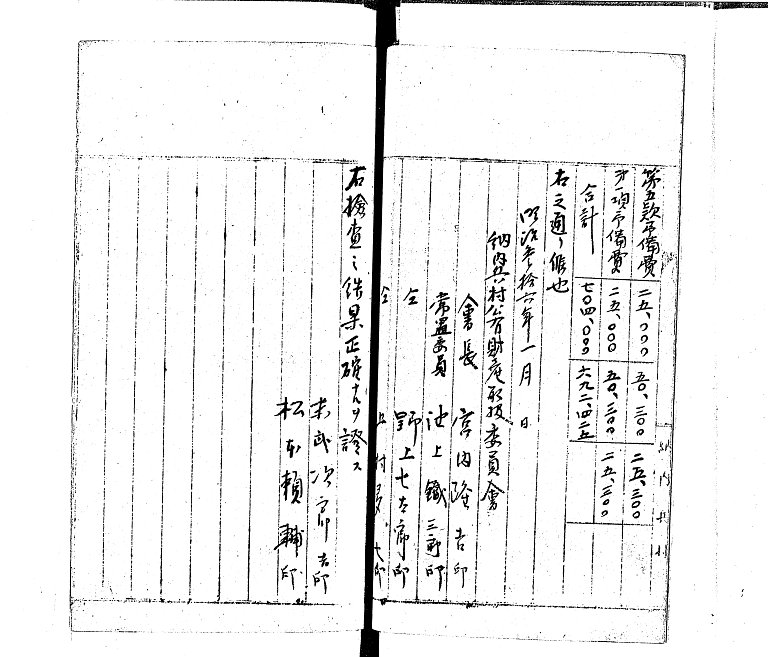 第五款予備費 二五、〇〇〇 五〇、三〇〇 二五、三〇〇
才一項予備費 二五、〇〇〇 五〇、三〇〇 二五、三〇〇
合計 七〇四、〇〇〇 六九二、四二五
右之通リ候也
明治参拾六年一月 日
納内共有財産取扱委員會
會長 宮内隆吉 印
常置委員 池上鐵三郎 印
仝 野上七太郎 印
仝 上村 印
右検査之結果正確ナルヲ證ス
末武次郎吉 印
松本頼輔 印